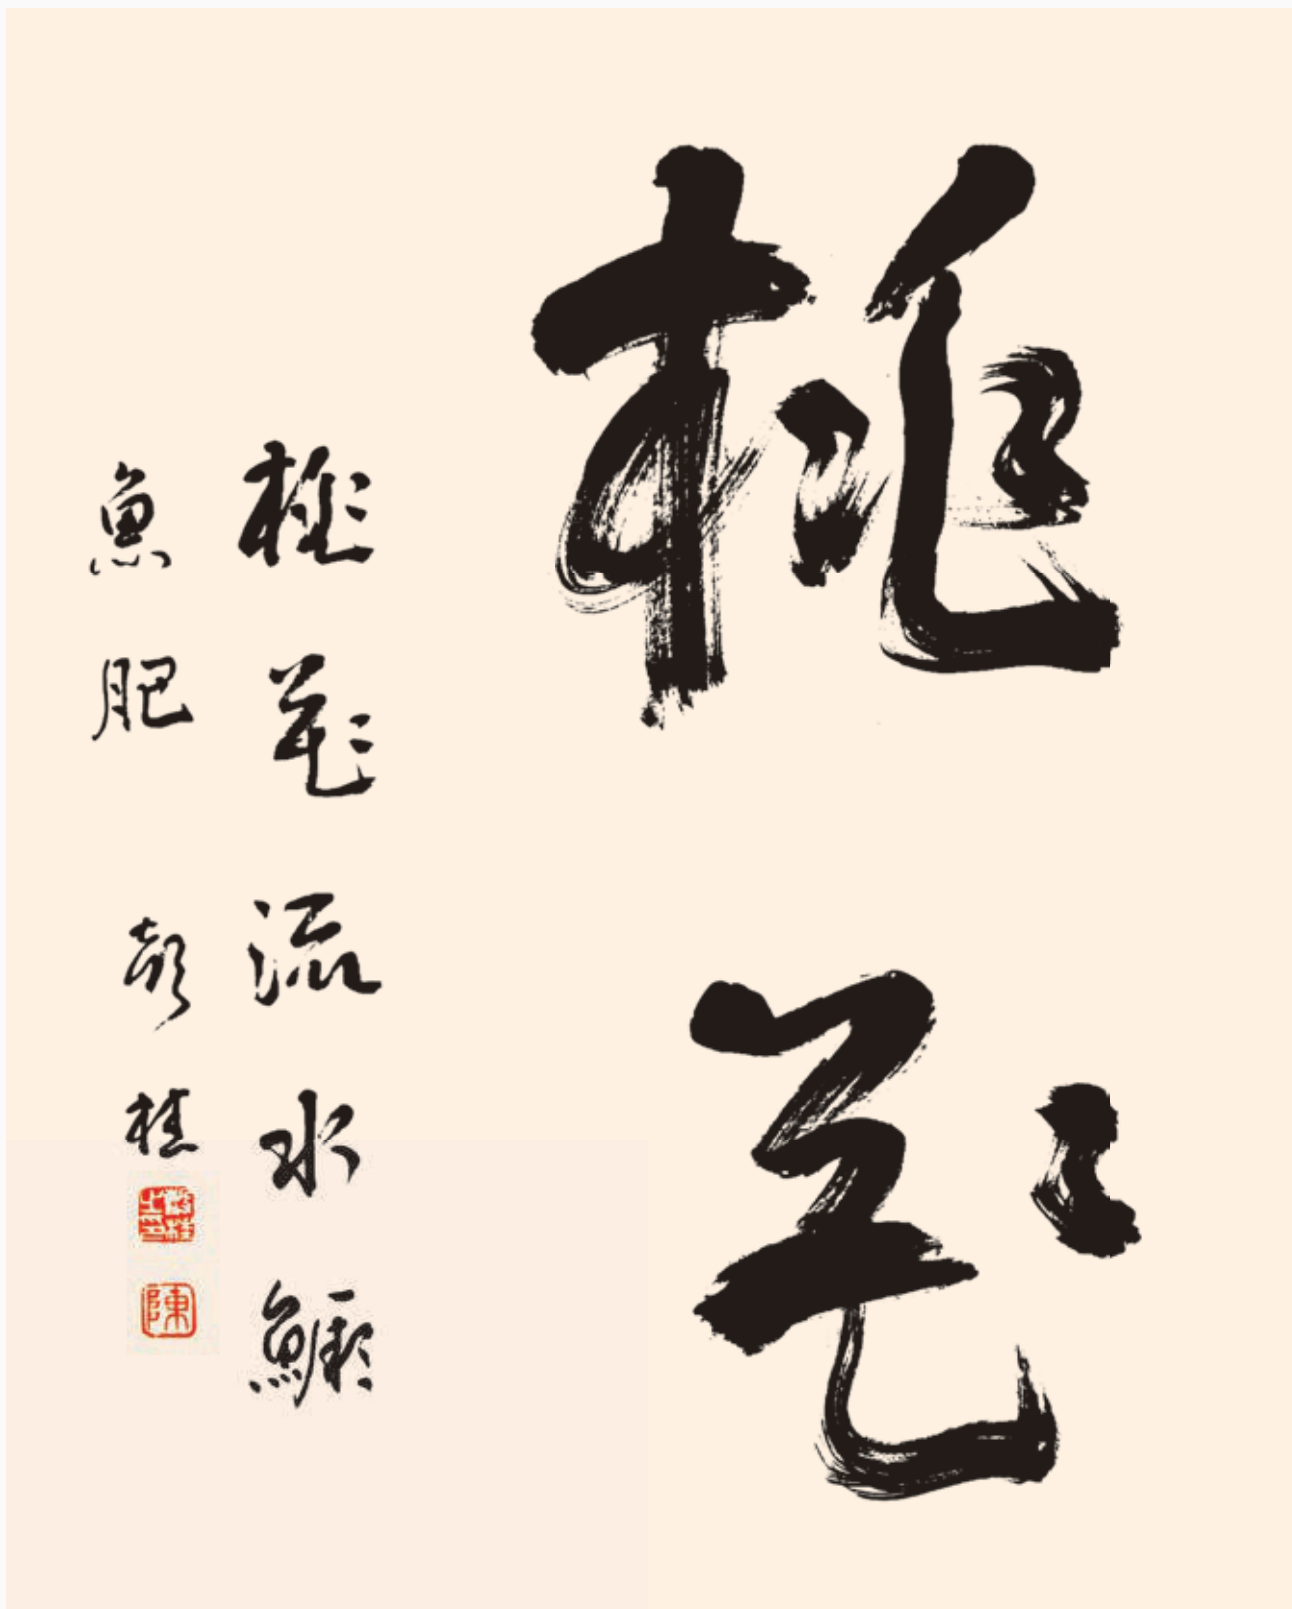 桃花
桃花流水鱖
魚肥 桂
陳